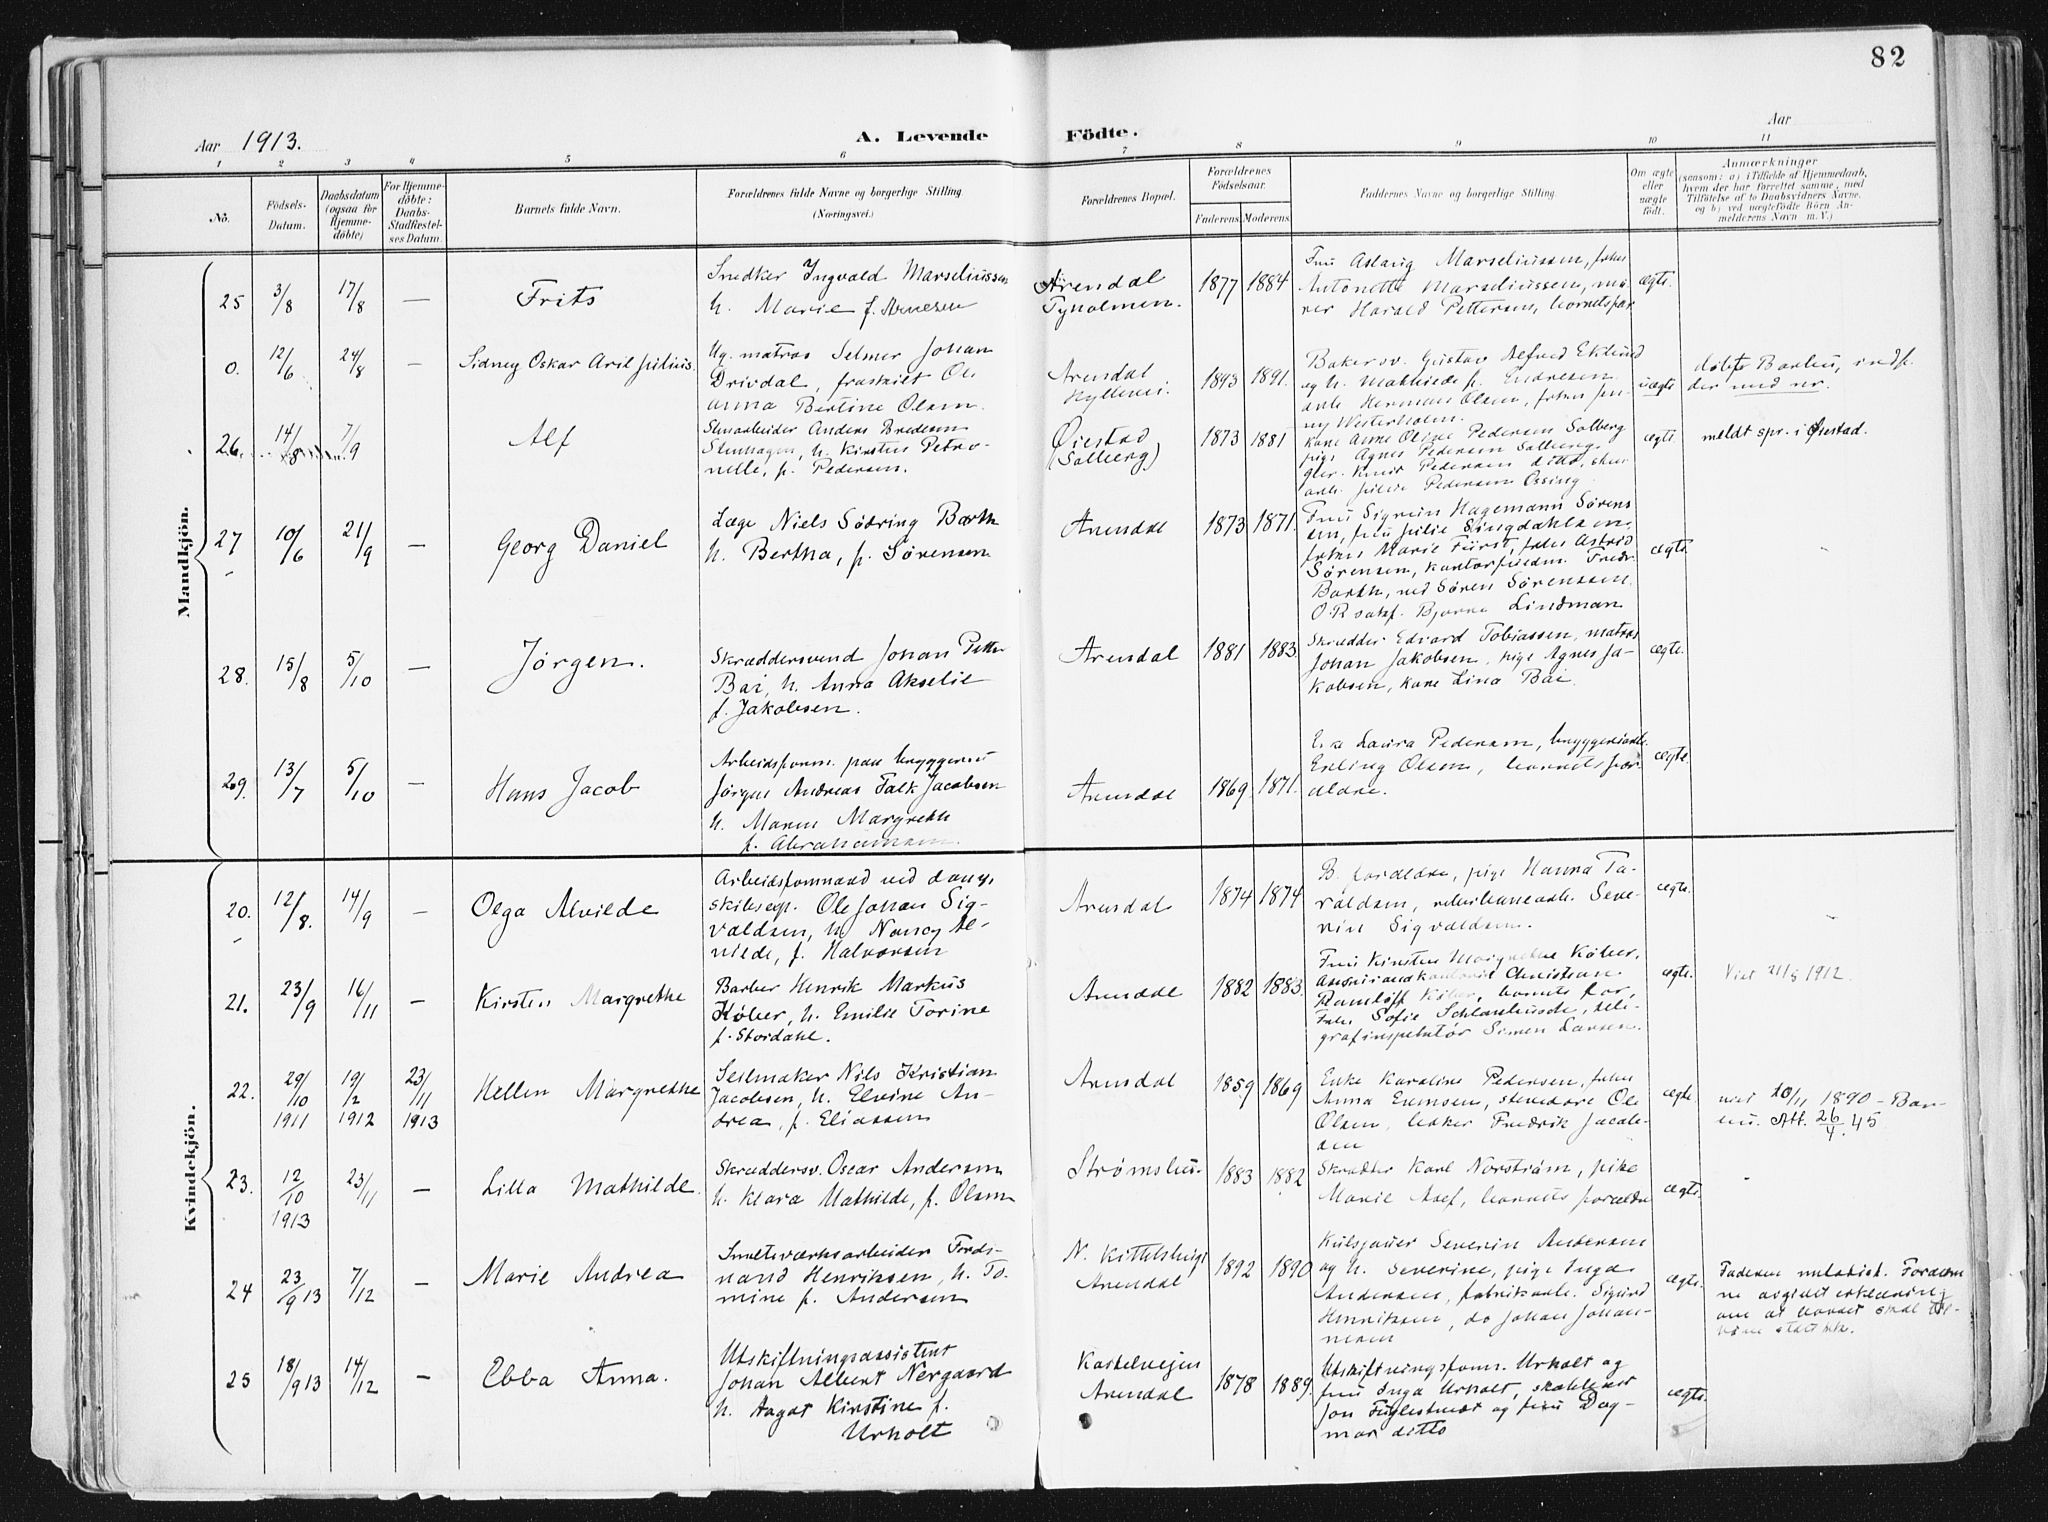 82
Aar 1913.
A. Levende Födte.
Aar
1 2 3 4 5 6 7 8 9 10 11
No.
Födsels-Datum.
Daabsdatum (ogsaa for Hjemme-döbte)
For Hjemme-döbte: Daabs-Stadfæstel-ses Datum.
Barnets fulde Navn.
Forældrenes fulde Navne og borgerlige Stilling (Næringsvei.)
Forældrenes Bopæl.
Forældrenes Födselsaar.
Faderens Moderens.
Faddernes Navne og borgerlige Stilling.
Om ægte eller uægte födt.
Anmærkninger
(saasom: a) i Tilfælde af Hjemmedaab, hvem der har forrettet samme, med Tilföielse af to Daabsvidners Navne, og b) ved uægtefödte Börn Anmelderens Navn m. V.)
Mandkjön.
25 3/8 17/8 — Frits
Snedker Ingvald Marseliussen
h. Marie f. Arnesen
Arendal
Tyholmen.
1877 1884
Fru Aslaug Marseliussen, frken
Antonette Marseliussen, mu-
rer Harald Pettersen, barnets for.
ægte.
0. 12/6 24/8 — Sidney Oskar Aril Julius.
Ug. matros Selmer Johan
Drivdal, fraskilt Ol
anna Bertine Olsen.
Arendal
Hyllevei.
1893 1891.
Bakersv. Gustav Alfred Eklund
og h. Mathilde f. Endresen
arb. Herman Olsen, frken Jen-
ny Westerholm.
uægte
døbt Barbu, indf.
der med nr.
26. 14/8 7/9 Alf
Stenarbeider Anders Bredesen
Stenhagen, h. Kirstine Petro-
nelle, f. Pedersen.
Øiestad
(Solberg)
1873 1881
kone Anne Oline Pedersen Solberg
pige Agnes Pedersen Solberg.
Knut Pedersen ditto,
arb. Julie Pedersen Ossing.
ægte.
meldt spr. i Øiestad.
27 10/6 21/9 — Georg Daniel
Læge Niels Södring Barth
h. Bertha, f. Sørensen
Arendal
1873 1871.
Fru Sigrun Hagemann Sørens
en, fru Julie Singdahlsen.
frken Marie Fürst, frken Astrid
Sørensen, kontorfuldm. Fredr.
Barth, ved Søren Sørenssen
O.R.sakf. Bjarne Lindman
ægte.
28. 15/8 5/10 — Jørgen.
Skræddersvend Johan Petter
Bai, h. Anna Akselie
f. Jakobsen.
Arendal
1881 1883
Skrædder Edvard Tobiassen, matros
Johan Jakobsen, pige Agnes Ja-
kobsen, kone Lina Bai.
ægte.
29. 13/7 5/10 — Hans Jacob
Arbeidsform. paa bryggeriu
Jørgen Andreas Falk Jacobsen
h. Maren Margrethe
f. Abrahamsen.
Arendal
1869 1871.
Laura Pedersen, bryggeriarb.
Erling Olsen, barnets for-
ældre.
ægte.
Kvindekjön.
20. 12/8. 14/9 — Olga Alvilde
Arbeidsformand ved damp-
skibsexp. Ole Johan Sig-
valdsen, h. Nancy Al-
vilde, f. Halvorsen
Arendal
1874 1874
B. forældre, pige Hanna Ta-
raldsen, arb. Seve-
rin Sigvaldsen.
ægte.
21. 23/9 16/11 — Kirsten Margrethe
Barber Henrik Markus
Køber, h. Emilie Torine
f. Stordahl.
Arendal
1882 1883.
Fru Kirsten Margrethe Køber,
Christian
Ramløff Køber, barnets for,
Frk. Sofie Schlanbusch, tele-
grafinspektør Simen Larsen.
ægte.
Viet 21/8 1912.
22. 29/10 1911 19/2 1912 23/11 1913 Hellen Margrethe
Seilmaker Nils Kristian
Jacobsen, h. Elvine An-
drea, f. Eliassen
Arendal
1859 1869
Enke Karoline Pedersen, frken
Anna Evensen, stevedore Ole
Olsen, baker Fredrik Jacob-
sen
ægte.
viet 20/11 1890 - Bar-
bu. Att. 26/4. 45
23. 12/10 1913 23/11 — Lilla Mathilde.
Skræddersv. Oscar Andersen
h. Klara Mathilde, f. Olsen
Strømsbu.
1883 1882
Skrædder Karl Norstrøm, pike
Marie Asef, barnets forældre
ægte.
24 23/9 13 7/12 — Marie Andrea
Smelteværksarbeider Ferdi-
nand Henriksen, h. To-
mine f. Andersen
N. Kittelsbugt
Arendal
1892 1890
Kulsjauer Severin Andersen
og h. Severine, pige Inga
Andersen, fabrikarb. Sigurd
Henriksen, do Johan Johan-
nesen
ægte.
Faderen metodist. Forældre-
ne avgivet erklæring
om at barnet skal til-
høre statskk.
25 18/9 13 14/12 — Ebba Anna.
Utskiftningsassistent
Johan Albert Nergaard
h. Aagot Kirstine f.
Urholt
Kastelveien
Arendal
1878 1889.
Utskiftningsform. Urholt og
fru Inga Urholt,
Jon Fuglestvedt og fru Dag-
mar ditto
ægte.